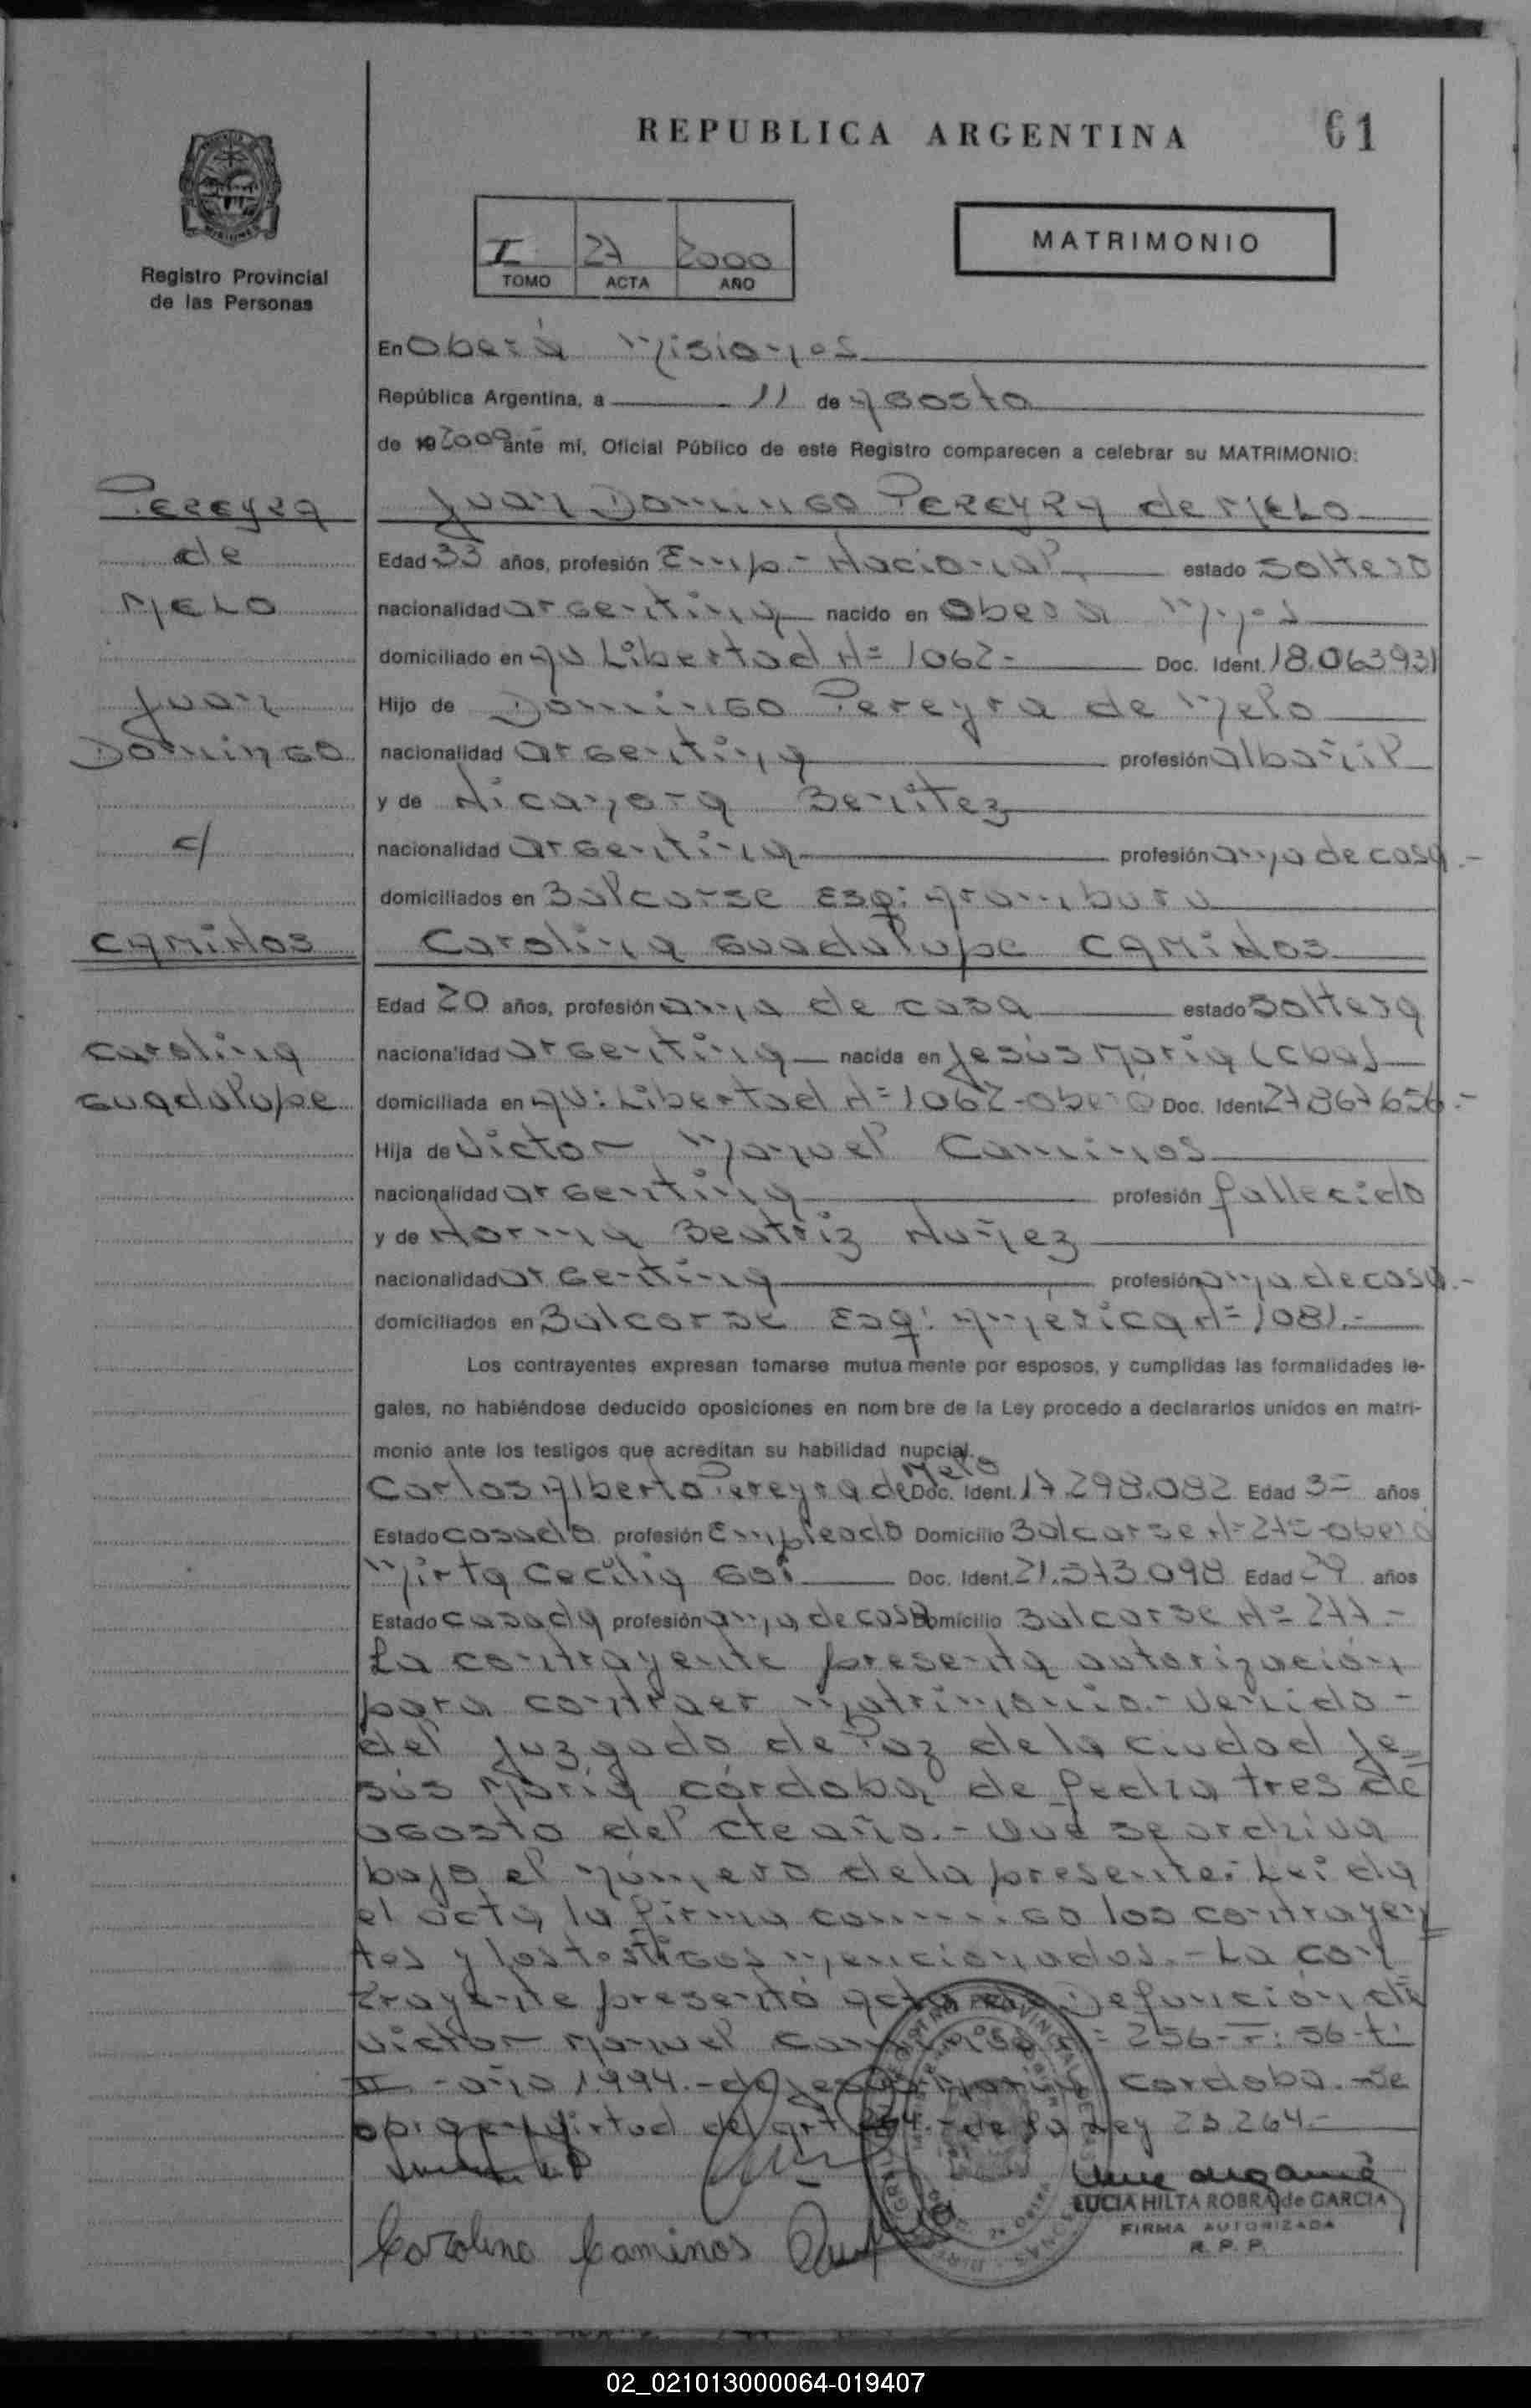 REPUBLICA ARGENTINA
61
Registro Provincial
de las Personas
I 27 2000
TOMO ACTA AÑO
MATRIMONIO
En Oberá Misiones
República Argentina, a 11 de agosto
de 19 2000 ante mí, Oficial Público de este Registro comparecen a celebrar su MATRIMONIO:
Pereyra
de
MELO
Juan
Domingo
c/
CAMINOS
Carolina
Guadalupe
Juan Domingo PEREYRA de MELO
Edad 33 años, profesión Emp- Nacional estado soltero
nacionalidad argentina nacido en Oberá Mnes
domiciliado en Av Libertad N= 1062- Doc. Ident. 18.063931
Hijo de Domingo Pereyra de Melo
nacionalidad argentina profesión albañil
y de Nicanora Benitez
nacionalidad argentina profesión ama de casa.-
domiciliados en Balcarse Esq: Aramburu
Carolina Guadalupe CAMINOS
Edad 20 años, profesión ama de casa estado soltera
nacionalidad argentina nacida en Jesús María (cba)
domiciliada en Av: Libertad N=1062-Oberá Doc. Ident. 27867656.-
Hija de Victor Manuel Caminos
nacionalidad argentina profesión fallecido
y de Norma Beatriz Nuñez
nacionalidad argentina profesión ama de casa.-
domiciliados en Balcarse Esq: America N=1081.-
Los contrayentes expresan tomarse mutua mente por esposos, y cumplidas las formalidades le-
gales, no habiéndose deducido oposiciones en nom bre de la Ley procedo a declararlos unidos en matri-
monio ante los testigos que acreditan su habilidad nupcial.
Carlos Alberto Pereyra de Melo Doc. Ident. 17.298.082 Edad años
Estado casado profesión Empleado Domicilio Balcarse N= Oberá
Mirta Cecilia Doc. Ident. 21.373.098 Edad 29 años
Estado casada profesión ama de casa Domicilio Balcarse N= 277-
La contrayente presenta autorización
para contraer matrimonio.- Venido-
del Juzgado de Paz de la ciudad Je=
sús María córdoba de fecha tres de
agosto del cte año.- Que se archiva
bajo el número de la presente. Leida
el acta, la firma conmigo los contrayen=
tes y los testigos mencionados.- La con
trayente presentó acta de Defunción de
Victor Manuel Caminos N= 256-F: 56-t:
II - año 1994.- de Jesús María cordoba.- Se
en virtud del art de la Ley 23.264.-
Carolina Caminos
LUCIA HILTA ROBRA de GARCIA
FIRMA AUTORIZADA
R. P. P.
02_021013000064-019407